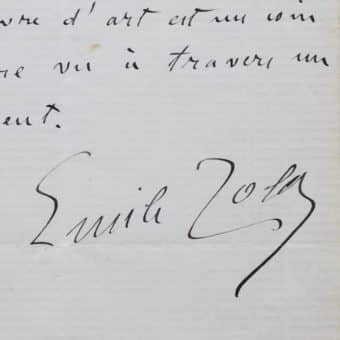 uvre d'art est un coin
re vu à travers un
ment.
Emile Zola